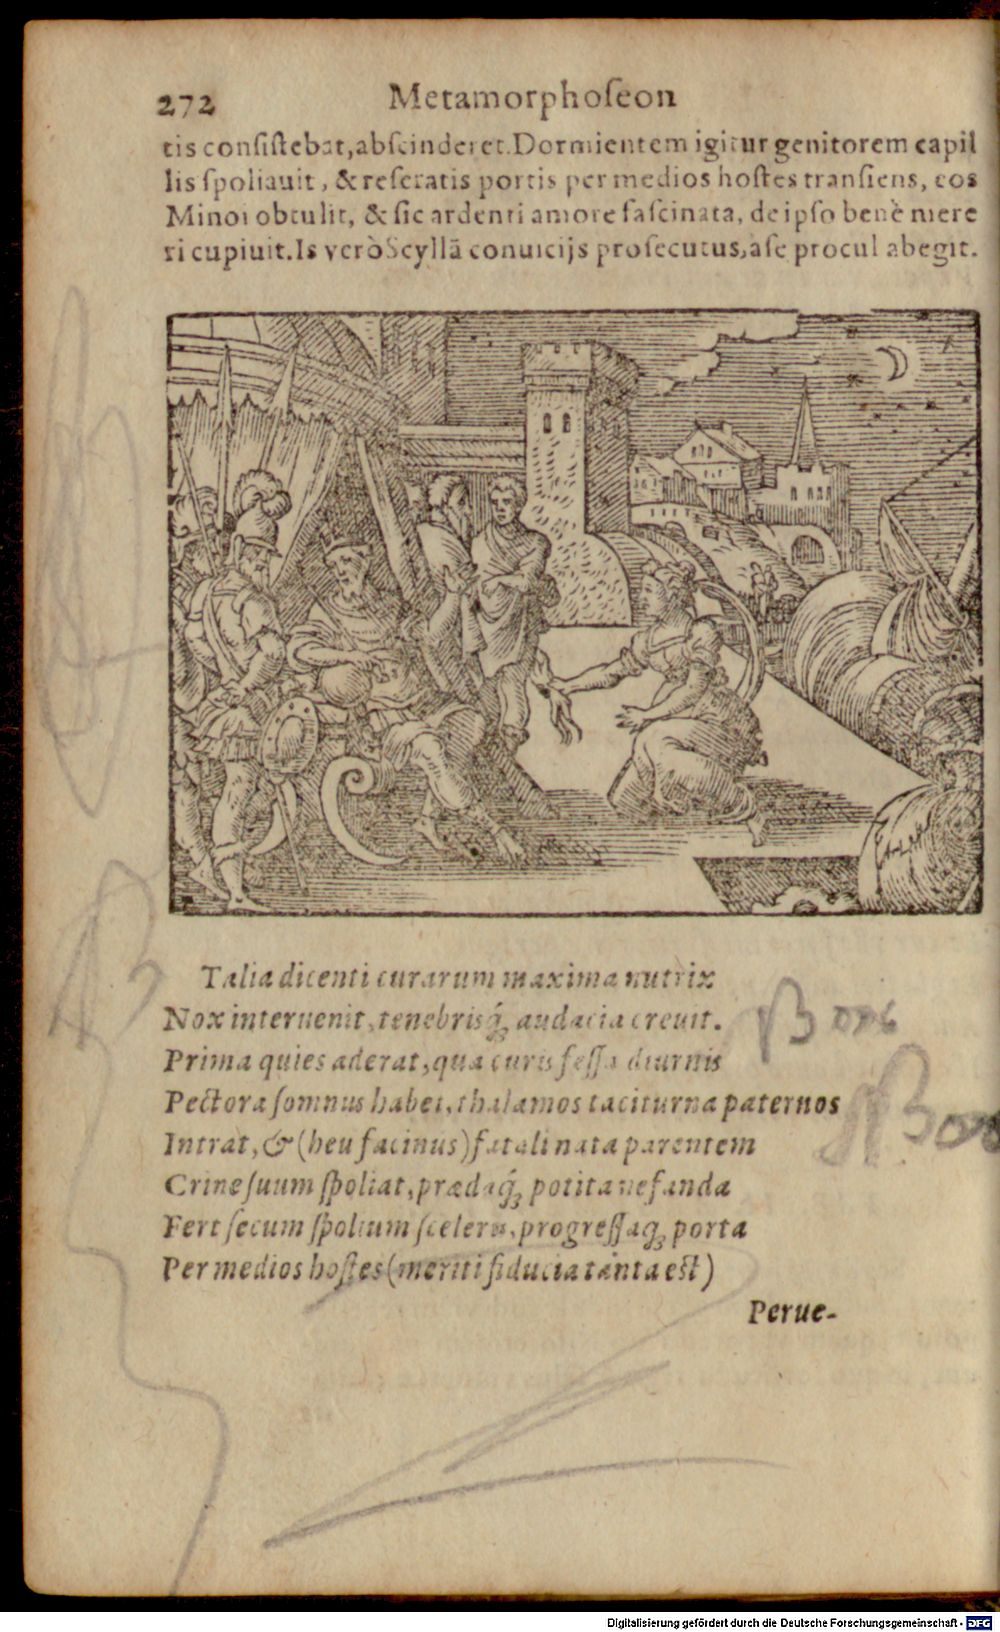 272 Metamorphoſeon
tis conſiſtebat, abſcinderet. Dormientem igitur genitorem capil
lis ſpoliauit, & reſeratis portis per medios hoſtes tranſiens, eos
Minoi obtulit, & ſic ardenti amore faſcinata, de ipſo benè mere
ri cupiuit. Is verò Scyllā conuicijs proſecutus, aſe procul abegit.
Talia dicenti curarum maxima nutrix
Nox interuenit, tenebrisq́; audacia creuit.
Prima quies aderat, qua curis feſſa diurnis
Pectora ſomnus habet, thalamos taciturna paternos
Intrat, & (heu facinus) fatali nata parentem
Crine ſuum ſpoliat, prædaq́; potita nefanda
Fert ſecum ſpolium ſceleris, progreſſaq; porta
Per medios hoſtes (meriti fiducia tanta eſt)
Perue-
Digitalisierung gefördert durch die Deutsche Forschungsgemeinschaft - DFG